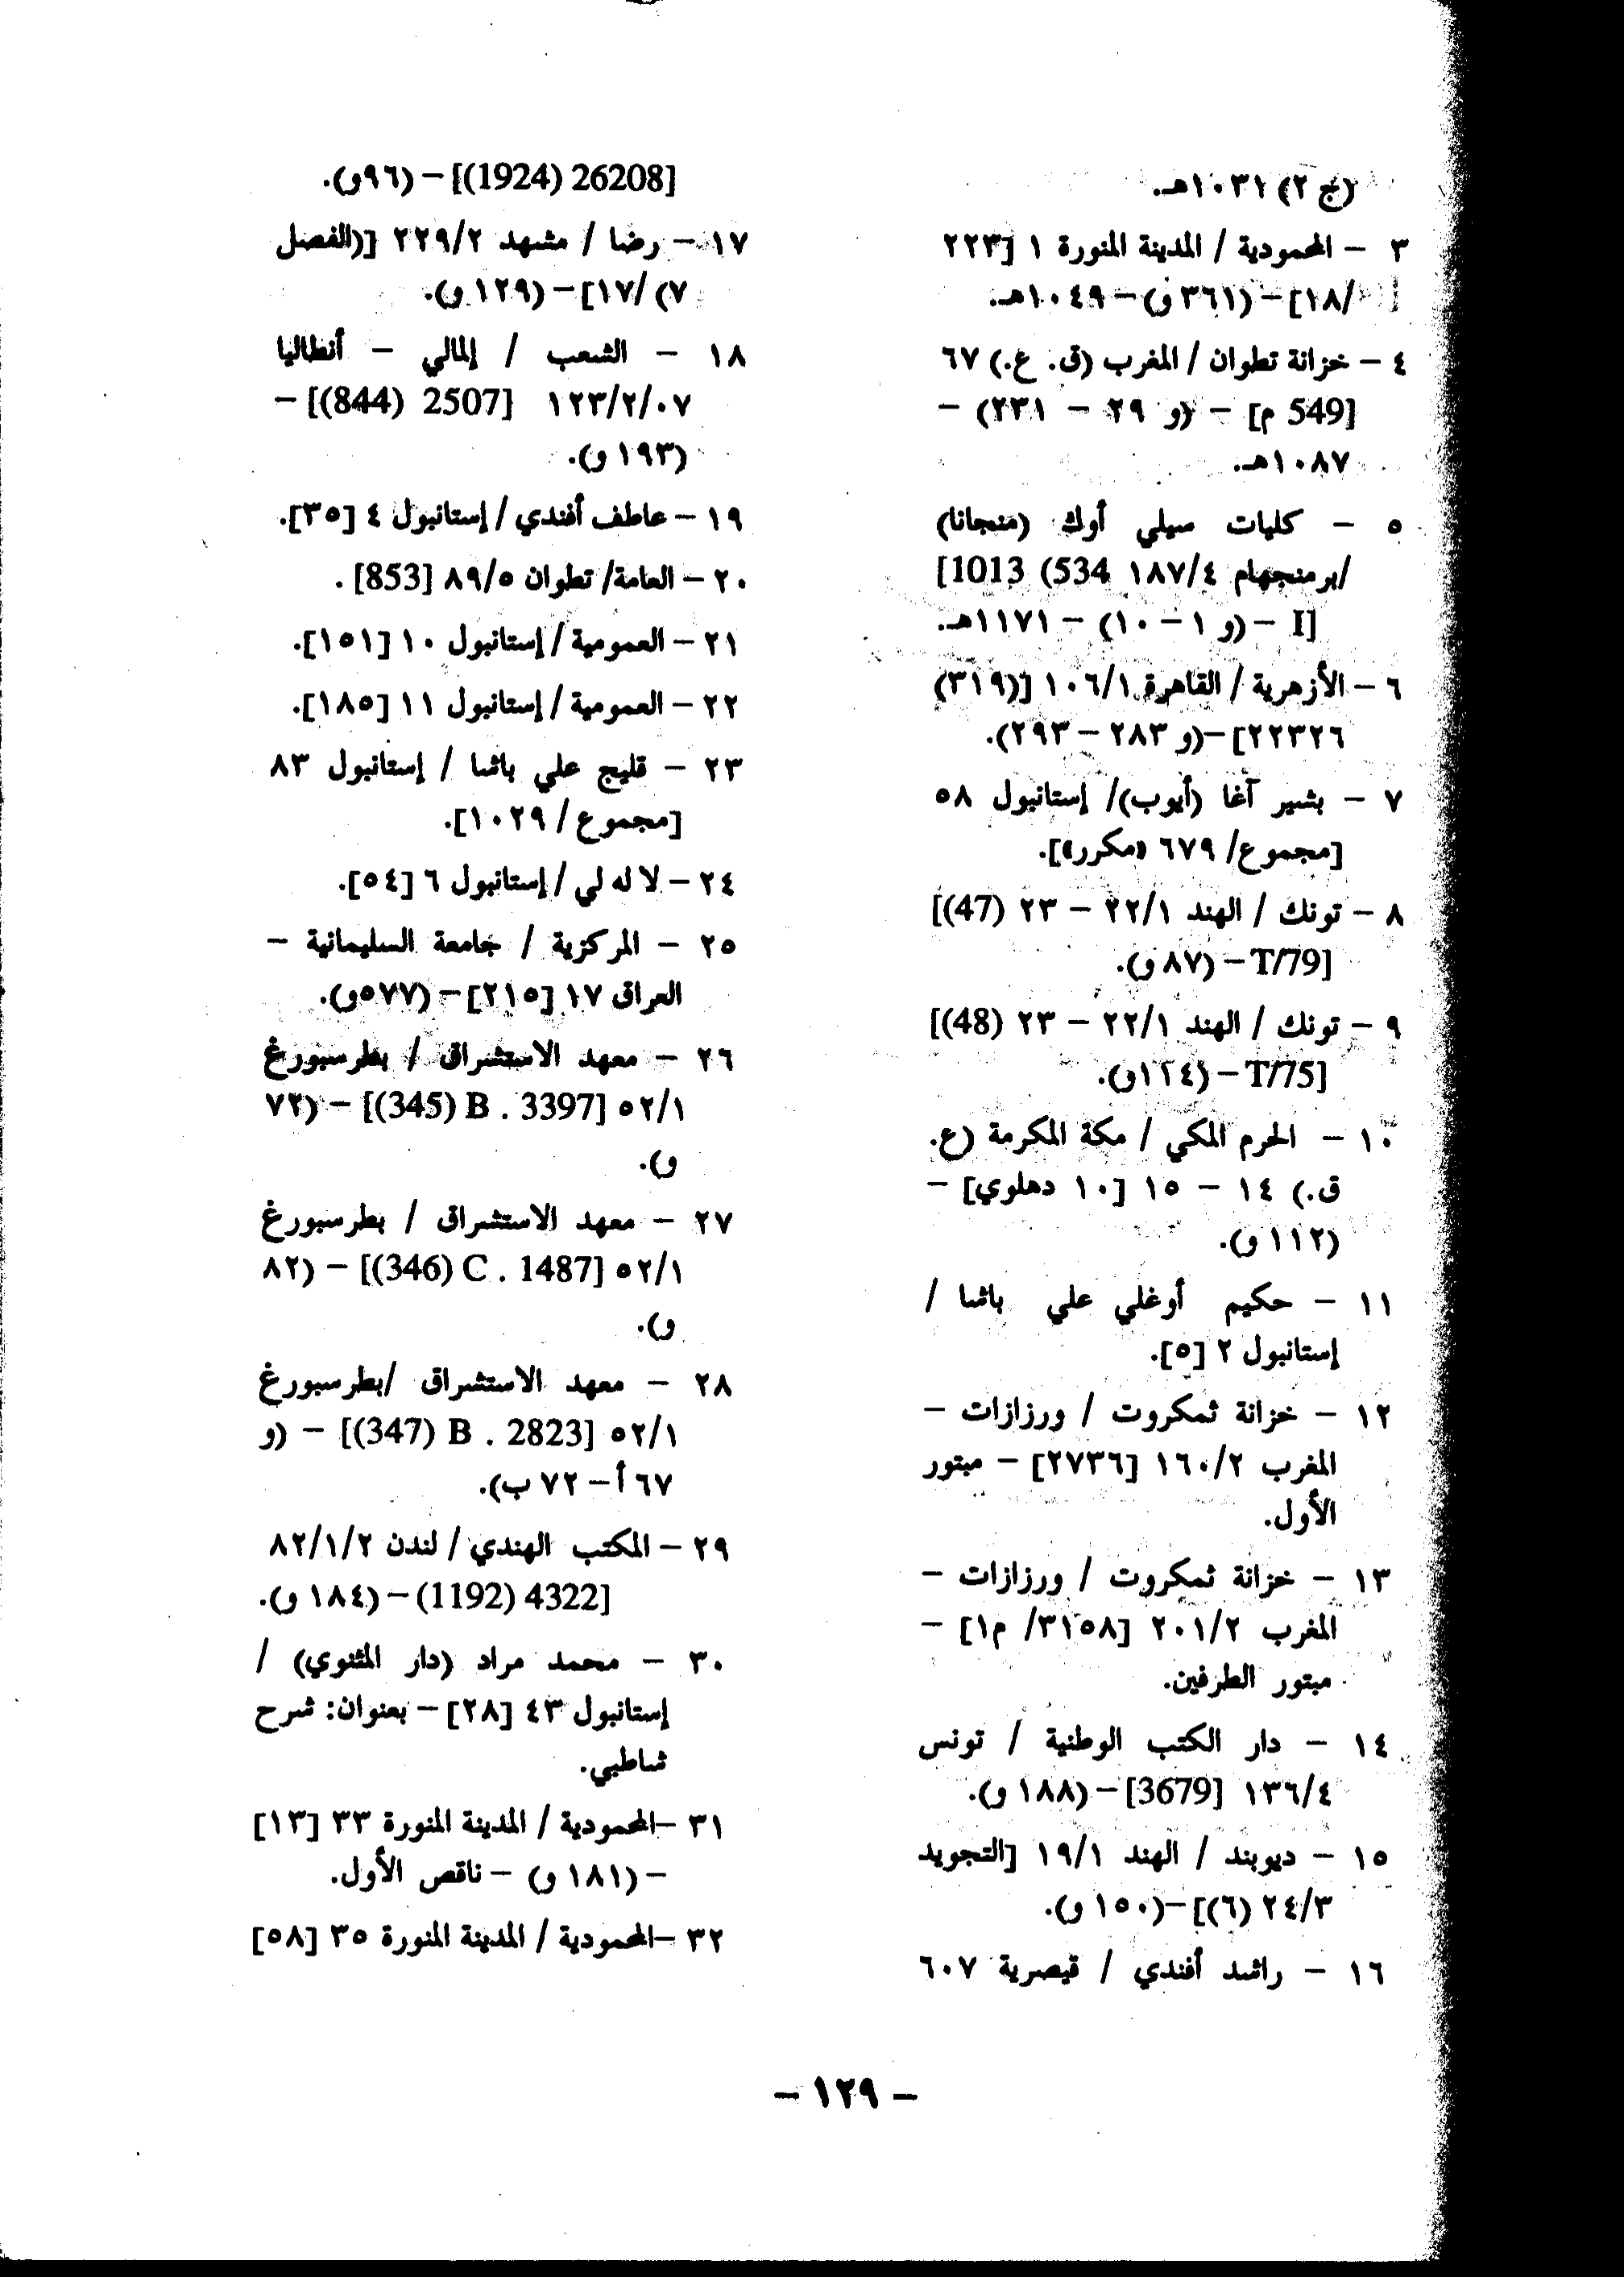 (ج ٢) ١٠٣١هـ.
٣ – المحمودية / المدينة المنورة ١ [٢٢٣
/١٨] – (٣٦١ و) – ١٠٤٩هـ.
٤ – خزانة تطوان / المغرب (ق. ع.) ٦٧
[549 م] – (و ٢٩ – ٢٣١) –
١٠٨٧هـ.
٥ – كليات سيلي أوك (منجانا)
/برمنجهام ١٨٧/٤ 534) 1013]
I] – (و ١ – ١٠) – ١١٧١هـ.
٦ – الأزهرية / القاهرة ١٠٦/١ [(٣١٩)
٢٢٣٢٦] –(و ٢٨٣ – ٢٩٣).
٧ – بشير آغا (أيوب)/ إستانبول ٥٨
[مجموع/ ٦٧٩ «مكرر»].
٨ – تونك / الهند ٢٢/١ – ٢٣ (47)]
[T/79 – (٨٧ و).
٩ – تونك / الهند ٢٢/١ – ٢٣ (48)]
[T/75 – (١٢٤و).
١٠ – الحرم المكي / مكة المكرمة (ع.
ق.) ١٤ – ١٥ [١٠ دهلوي] –
(١١٢ و).
١١ – حكيم أوغلي علي باشا /
إستانبول ٢ [٥].
١٢ – خزانة ثمكروت / ورزازات –
المغرب ١٦٠/٢ [٢٧٣٦] – مبتور
الأول.
١٣ – خزانة ثمكروت / ورزازات –
المغرب ٢٠١/٢ [٣١٥٨/ م١] –
مبتور الطرفين.
١٤ – دار الكتب الوطنية / تونس
١٣٦/٤ [3679] – (١٨٨ و).
١٥ – ديوبند / الهند ١٩/١ [التجويد
٢٤/٣ (٦)] –(١٥٠ و).
١٦ – راشد أفندي / قيصرية ٦٠٧
[26208 (1924)] – (٩٦و).
١٧ – رضا / مشهد ٢٢٩/٢ [(الفصل
٧) /١٧] – (١٢٩ و).
١٨ – الشعب / إلمالي – أنطاليا
١٢٣/٢/٠٧ [2507 (844)] –
(١٩٣ و).
١٩ – عاطف أفندي / إستانبول ٤ [٣٥].
٢٠ – العامة/ تطوان ٨٩/٥ [853] .
٢١ – العمومية / إستانبول ١٠ [١٥١].
٢٢ – العمومية / إستانبول ١١ [١٨٥].
٢٣ – قليج علي باشا / إستانبول ٨٣
[مجموع / ١٠٢٩].
٢٤ – لا له لي / إستانبول ٦ [٥٤].
٢٥ – المركزية / جامعة السليمانية –
العراق ١٧ [٢١٥] – (٥٧٧و).
٢٦ – معهد الاستشراق / بطرسبورغ
٥٢/١ [B . 3397 (345)] – (٧٢
و).
٢٧ – معهد الاستشراق / بطرسبورغ
٥٢/١ [C . 1487 (346)] – (٨٢
و).
٢٨ – معهد الاستشراق /بطرسبورغ
٥٢/١ [B . 2823 (347)] – (و
٦٧ أ – ٧٢ ب).
٢٩ – المكتب الهندي / لندن ٨٢/١/٢
[4322 (1192) – (١٨٤ و).
٣٠ – محمد مراد (دار المثنوي) /
إستانبول ٤٣ [٢٨] – بعنوان: شرح
شاطبي.
٣١ –المحمودية / المدينة المنورة ٣٣ [١٣]
– (١٨١ و) – ناقص الأول.
٣٢ –المحمودية / المدينة المنورة ٣٥ [٥٨]
– ١٢٩ –